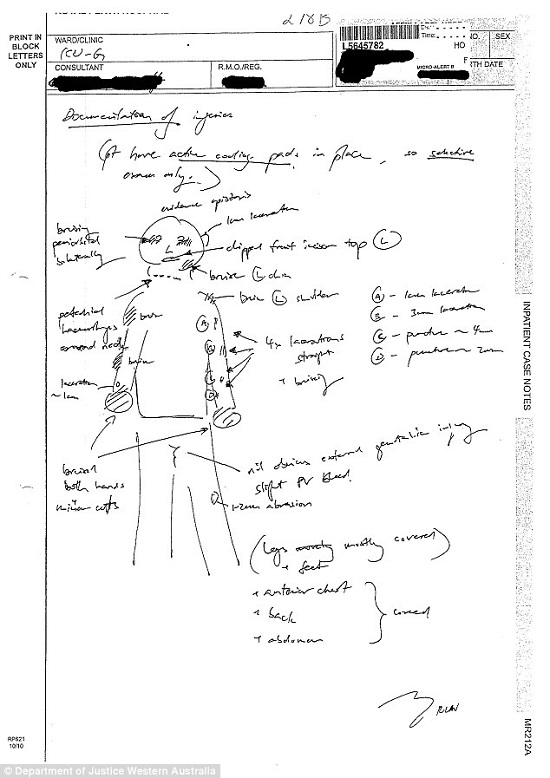 218B
PRINT IN
BLOCK
LETTERS
ONLY
WARD/CLINIC
ICU-G
CONSULTANT
R.M.O./REG.
Time:
NO.
SEX
L5645782
HO
F
MICRO-ALERT B
TH DATE
Documentation of injuries
(pt have active cooling pads in place, so selective
only.)
evidence epistaxis
1cm laceration
bruising
periorbital
bilaterally
chipped front incisor top L
bruise L chin
bruise L shoulder
petechial
haemorrhages
around neck
bruise
bruise
laceration
~1cm
A
B
C
D
4x lacerations
straight
+ bruising
A - 1cm laceration
B - 3cm laceration
C - puncture ~ 4cm
D - puncture ~ 2cm
bruised
both hands
minor cuts
nil obvious external genitalia injury
slight PV bleed.
1-2cm abrasion
(legs mostly mostly covered)
+ feet
+ anterior chest
+ back
+ abdomen
covered
INPATIENT CASE NOTES
MR212A
RP621
10/10
© Department of Justice Western Australia